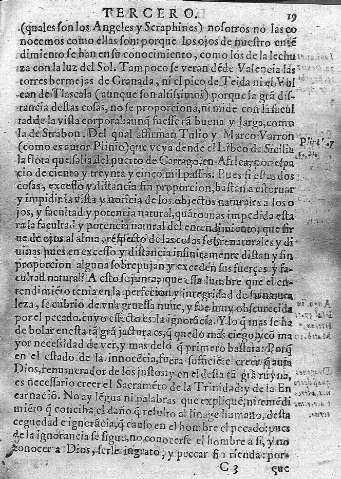 TERCERO. 19
(quales son los Angeles y Seraphines) nosotros no las co
nocemos como ellas son: porque los ojos de nuestro ente
dimiento se han en su conocimiento, como los de la lechu
za con la luz del Sol. Tampoco se veran desde Valencia las
torres bermejas de Granada, ni el pico de Teida ni el Vul
can de Tlascala (aunque son altissimos) porque la grã dis
tancia destas cosas, no se proporciona, ni mide con la facul
tad de la vista corporal: aunq̃ fuesse tã buena y larga, como
la de Strabon. Del qual affirman Tulio y Marco Varron
(como es autor Plinio) que veya desde el Libeo de Sicilia
la flota que salia del puerto de Cartago, en Africa, con espa
cio de ciento y treynta y cinco mil passos. Pues si estas dos
cosas, excesso y distancia sin proporcion, bastan a estoruar
y impidir la vista y noticia de los objectos naturales a los o
jos, y facultad y potencia natural, quãto mas impedida esta
ra la facultad y potencia natural del entendimiento, que sir
ue de ojos al alma, respecto de las cosas sobrenaturales y di
uinas pues en excesso y distancia infinitamente distan y sin
proporcion alguna sobrepujan y exceden sus fuerças y fa
cultad natural? A esto se junta, que essa lumbre que el en-
tendimiento tenia en la perfection y integridad de su natura
leza, se cubrio de vna gruessa nuue, y fue muy obscurecida
por el peccado, cuyo efecto es la ignorãcia. Y lo q̃ mas se ha
de bolar en esta tã grã jactura es, q̃ quedo mas ciego, y cõ ma
yor necesidad de ver, y mas delo q̃ primero bastaua: Porq̃
en el estado de la innocẽcia, fuera suficiẽte creer q̃ auia
Dios, remunerador de los justos: y en el desta tã grã ruyna,
es necessario creer el Sacramẽto de la Trinidad, y de la En
carnaciõ. No ay lẽgua ni palabras que explique, ni entẽdi
miẽto q̃ conciba el daño q̃ resulto al linage humano, desta
ceguedad e ignorãcia, q̃ causo en el hombre el peccado: pues
de la ignorancia se sigue, no conoscerse el hombre a si, y no
conocer a Dios, serle ingrato, y peccar sin rienda: por-
C 3 que